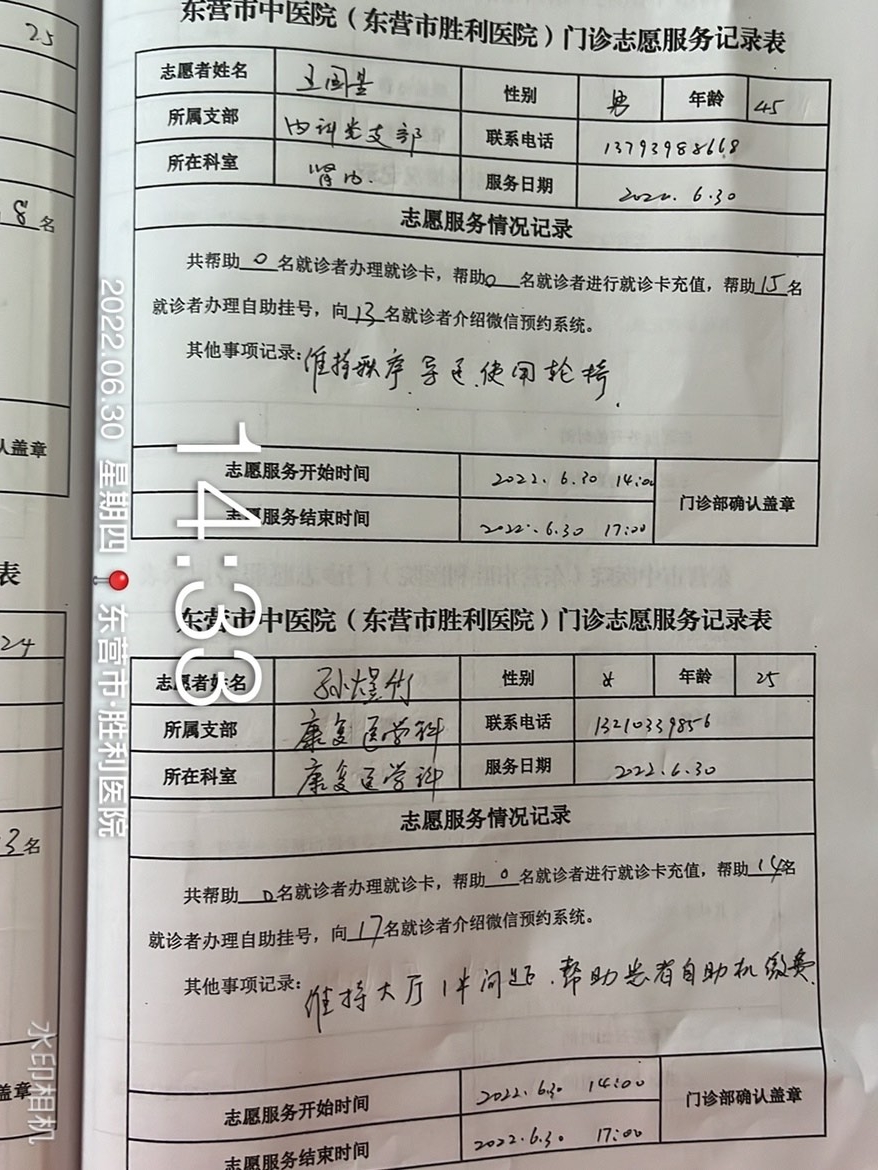 25
8名
人盖章
表
24
3名
盖章
东营市中医院（东营市胜利医院）门诊志愿服务记录表
志愿者姓名 王国星 性别 男 年龄 45
所属支部 内科党支部 联系电话 13793988668
所在科室 肾内. 服务日期 2022. 6.30
志愿服务情况记录
共帮助 0 名就诊者办理就诊卡，帮助 0 名就诊者进行就诊卡充值，帮助 15 名
就诊者办理自助挂号，向 13 名就诊者介绍微信预约系统。
其他事项记录: 维持秩序.导医.使用轮椅.
志愿服务开始时间 2022. 6.30 14:00
门诊部确认盖章
志愿服务结束时间 2022. 6.30 17:00
东营市中医院（东营市胜利医院）门诊志愿服务记录表
志愿者姓名 孙煜竹 性别 女 年龄 25
所属支部 康复医学科 联系电话 13210339856
所在科室 康复医学科 服务日期 2022.6.30
志愿服务情况记录
共帮助 0 名就诊者办理就诊卡，帮助 0 名就诊者进行就诊卡充值，帮助 14 名
就诊者办理自助挂号，向 17 名就诊者介绍微信预约系统。
其他事项记录: 维持大厅 问题.帮助患者自助机缴费
志愿服务开始时间 2022. 6.30 14:00
门诊部确认盖章
志愿服务结束时间 2022.6.30 17:00
14:33
2022.06.30 星期四 东营市·胜利医院
水印相机